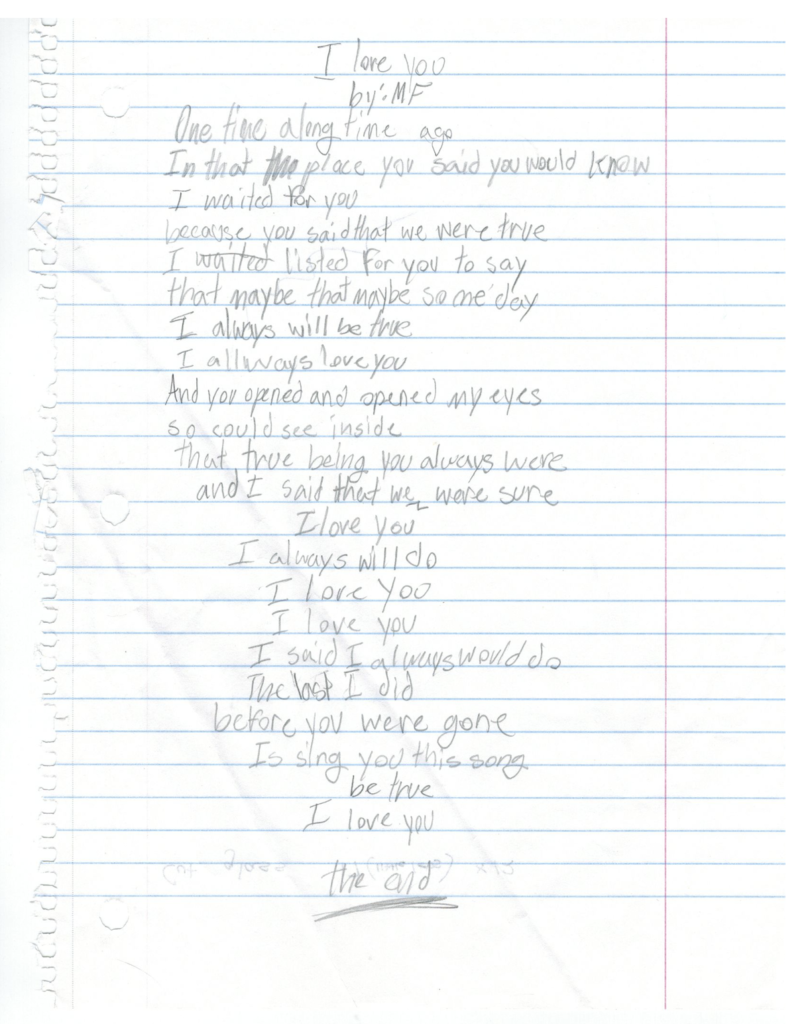 I love you
by: MF
One time along time ago
In that the place you said you would know
I waited for you
because you said that we were true
I waited listed for you to say
that maybe that maybe some day
I always will be true
I allways love you
And you opened and opened my eyes
so could see inside
that true being you always were
and I said that we were sure
I love you
I always will do
I love You
I love you
I said I always would do
The last I did
before you were gone
Is sing you this song
be true
I love you
the end